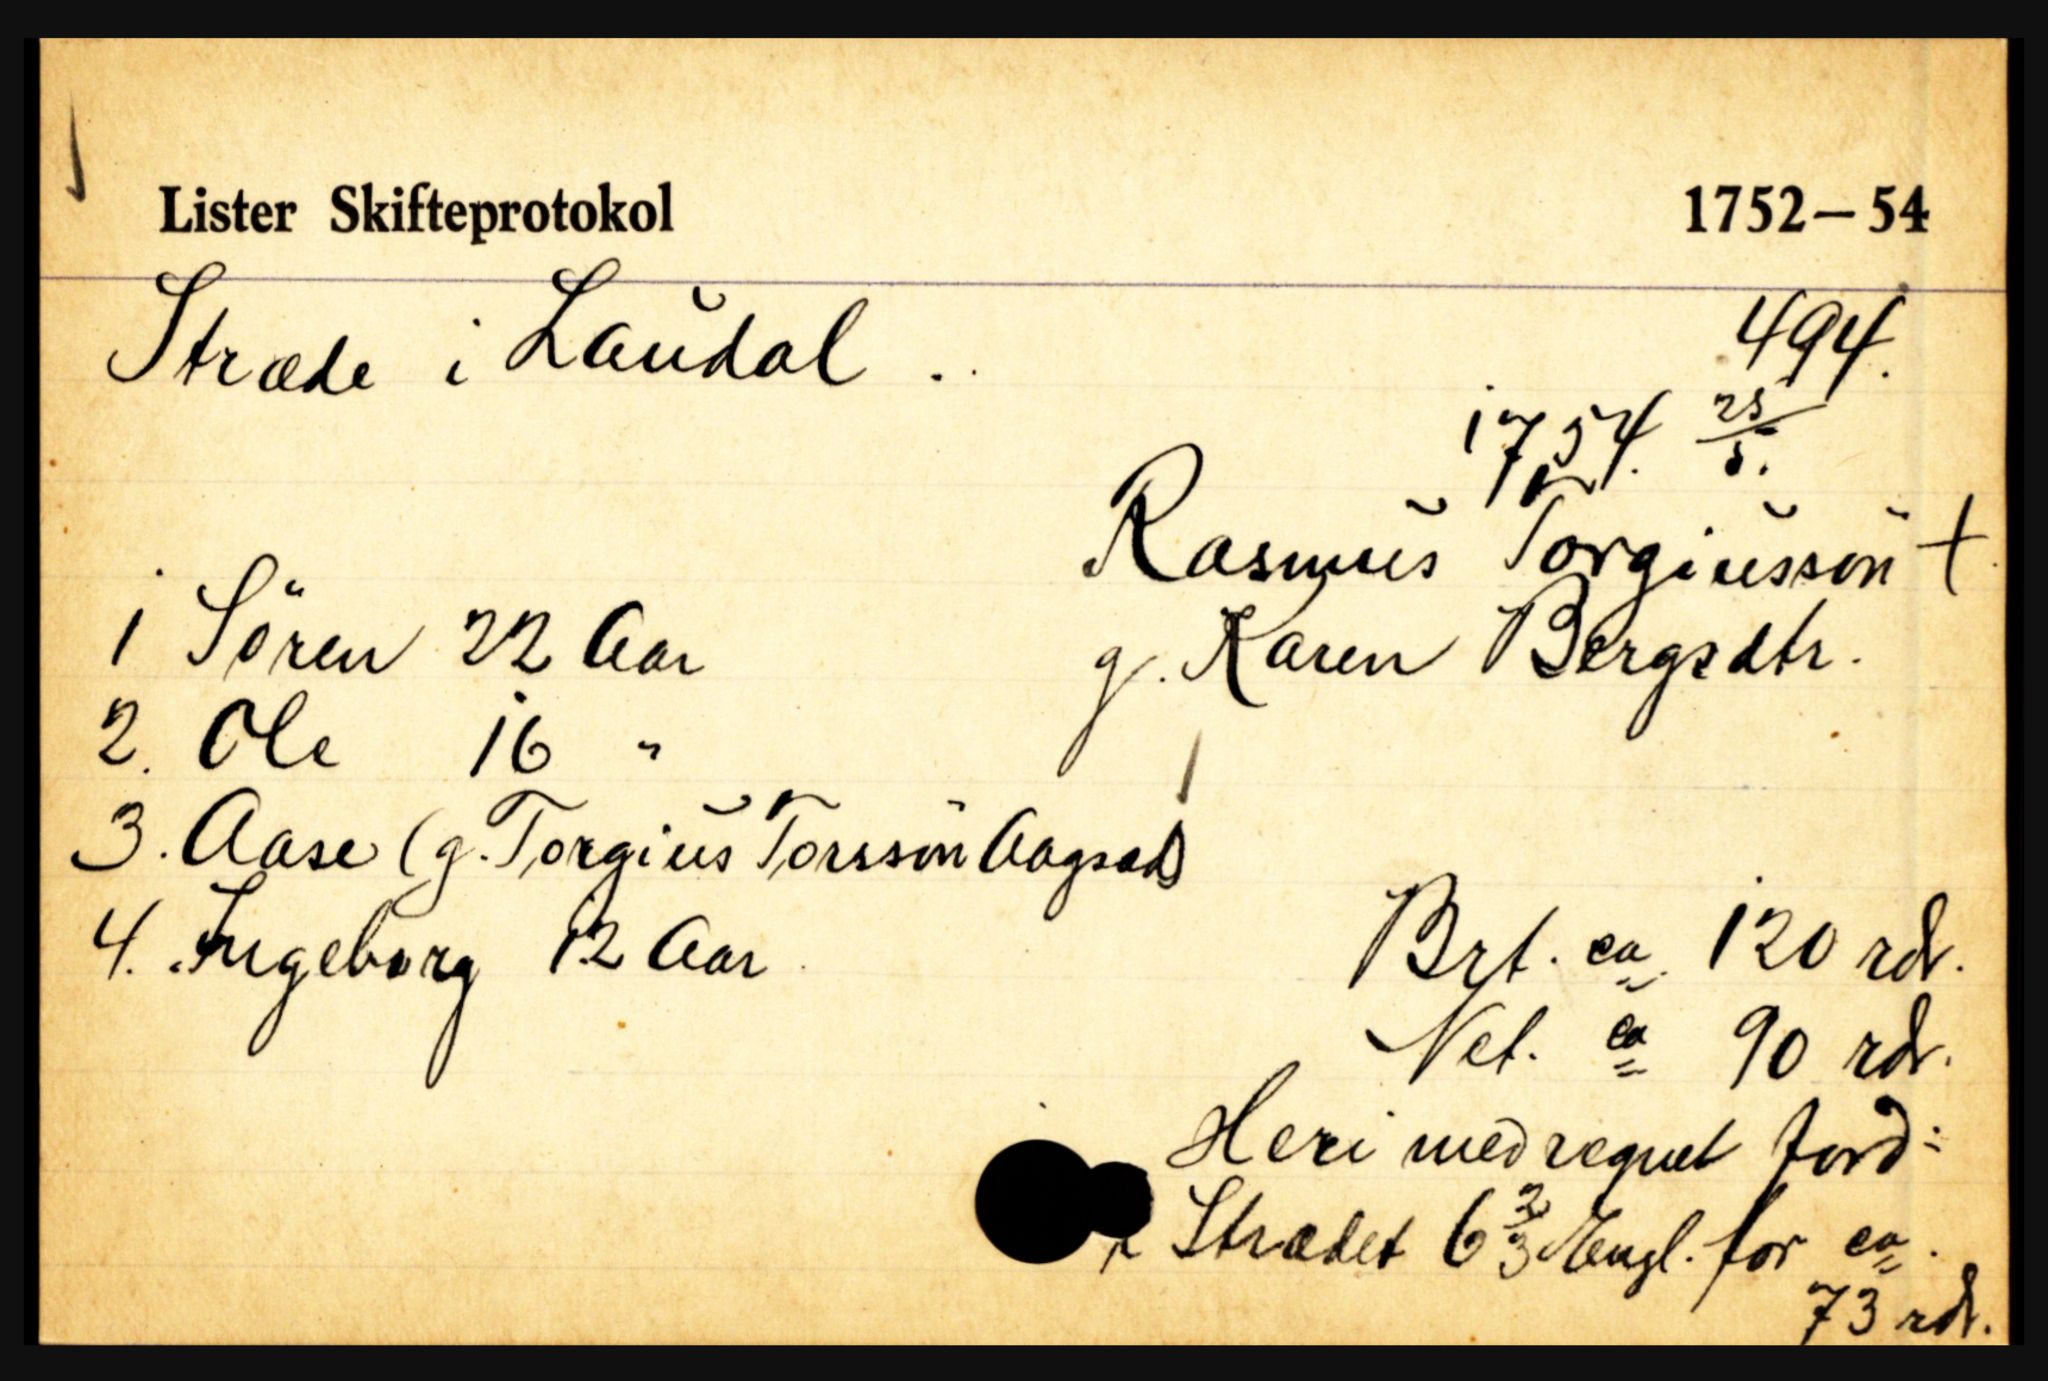 Lister Skifteprotokol 1752–54
Stræde i Laudal.
494.
1754. 25/5.
Rasmus Torgiussön +
g. Karen Bergsdtr.
1 Sören 22 Aar
2. Ole 16 "
3. Aase (g. Torgius Torssön Aagsæd)
4. Ingeborg 12 Aar
Brt. ca. 120 rdr.
Net. ca 90 rdr.
Heri medregnet jord:
i Strædet 6 2/3 Engl. for ca.
73 rdr.